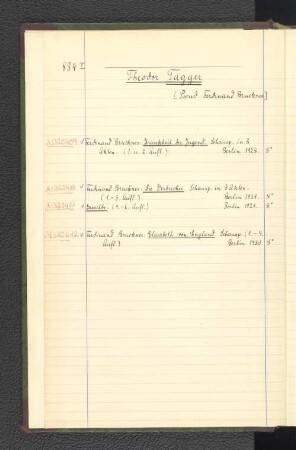 Theodor Tagger
[Pseud. Ferdinand Bruckner]
Ferdinand Bruckner. Krankheit der Jugend. Schausp. in 3
Akten. (1. u. 2. Aufl.) Berlin 1928. 8°
Ferdinand Bruckner. Die Verbrecher. Schausp. in 3 Akten.
(1.-3. Aufl.) Berlin 1929. 8°
(1.-6. Aufl.) Berlin 8°
Ferdinand Bruckner. Elisabeth von England. Schausp. (1.-4.
Aufl.) Berlin 1930. 8°